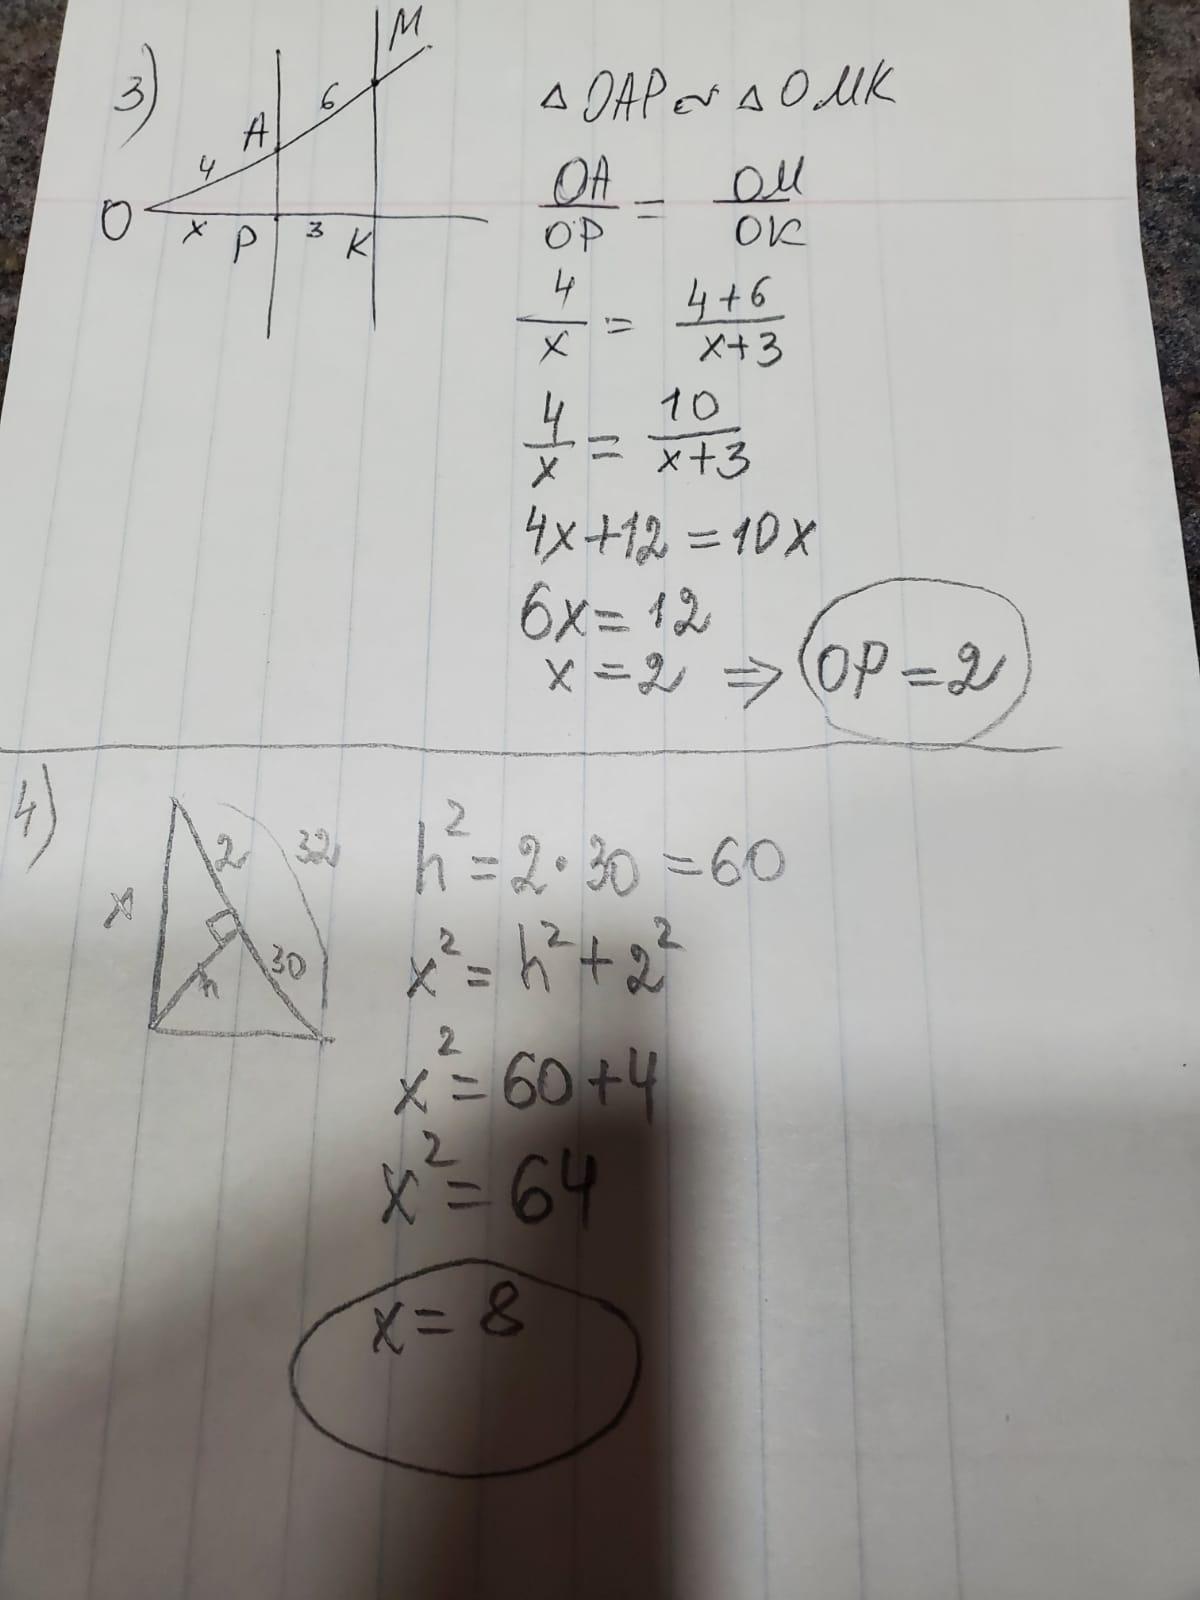 3)
M
6
A
4
O
x
P
3
K
△OAP ~ △OMK
OA/OP = OM/OK
4/x = 4+6/x+3
4/x = 10/x+3
4x+12=10x
6x=12
x=2 ⇒ OP=2
4)
2
32
x
h
30
h²=2·30=60
x²=h²+2²
x²=60+4
x²=64
x=8